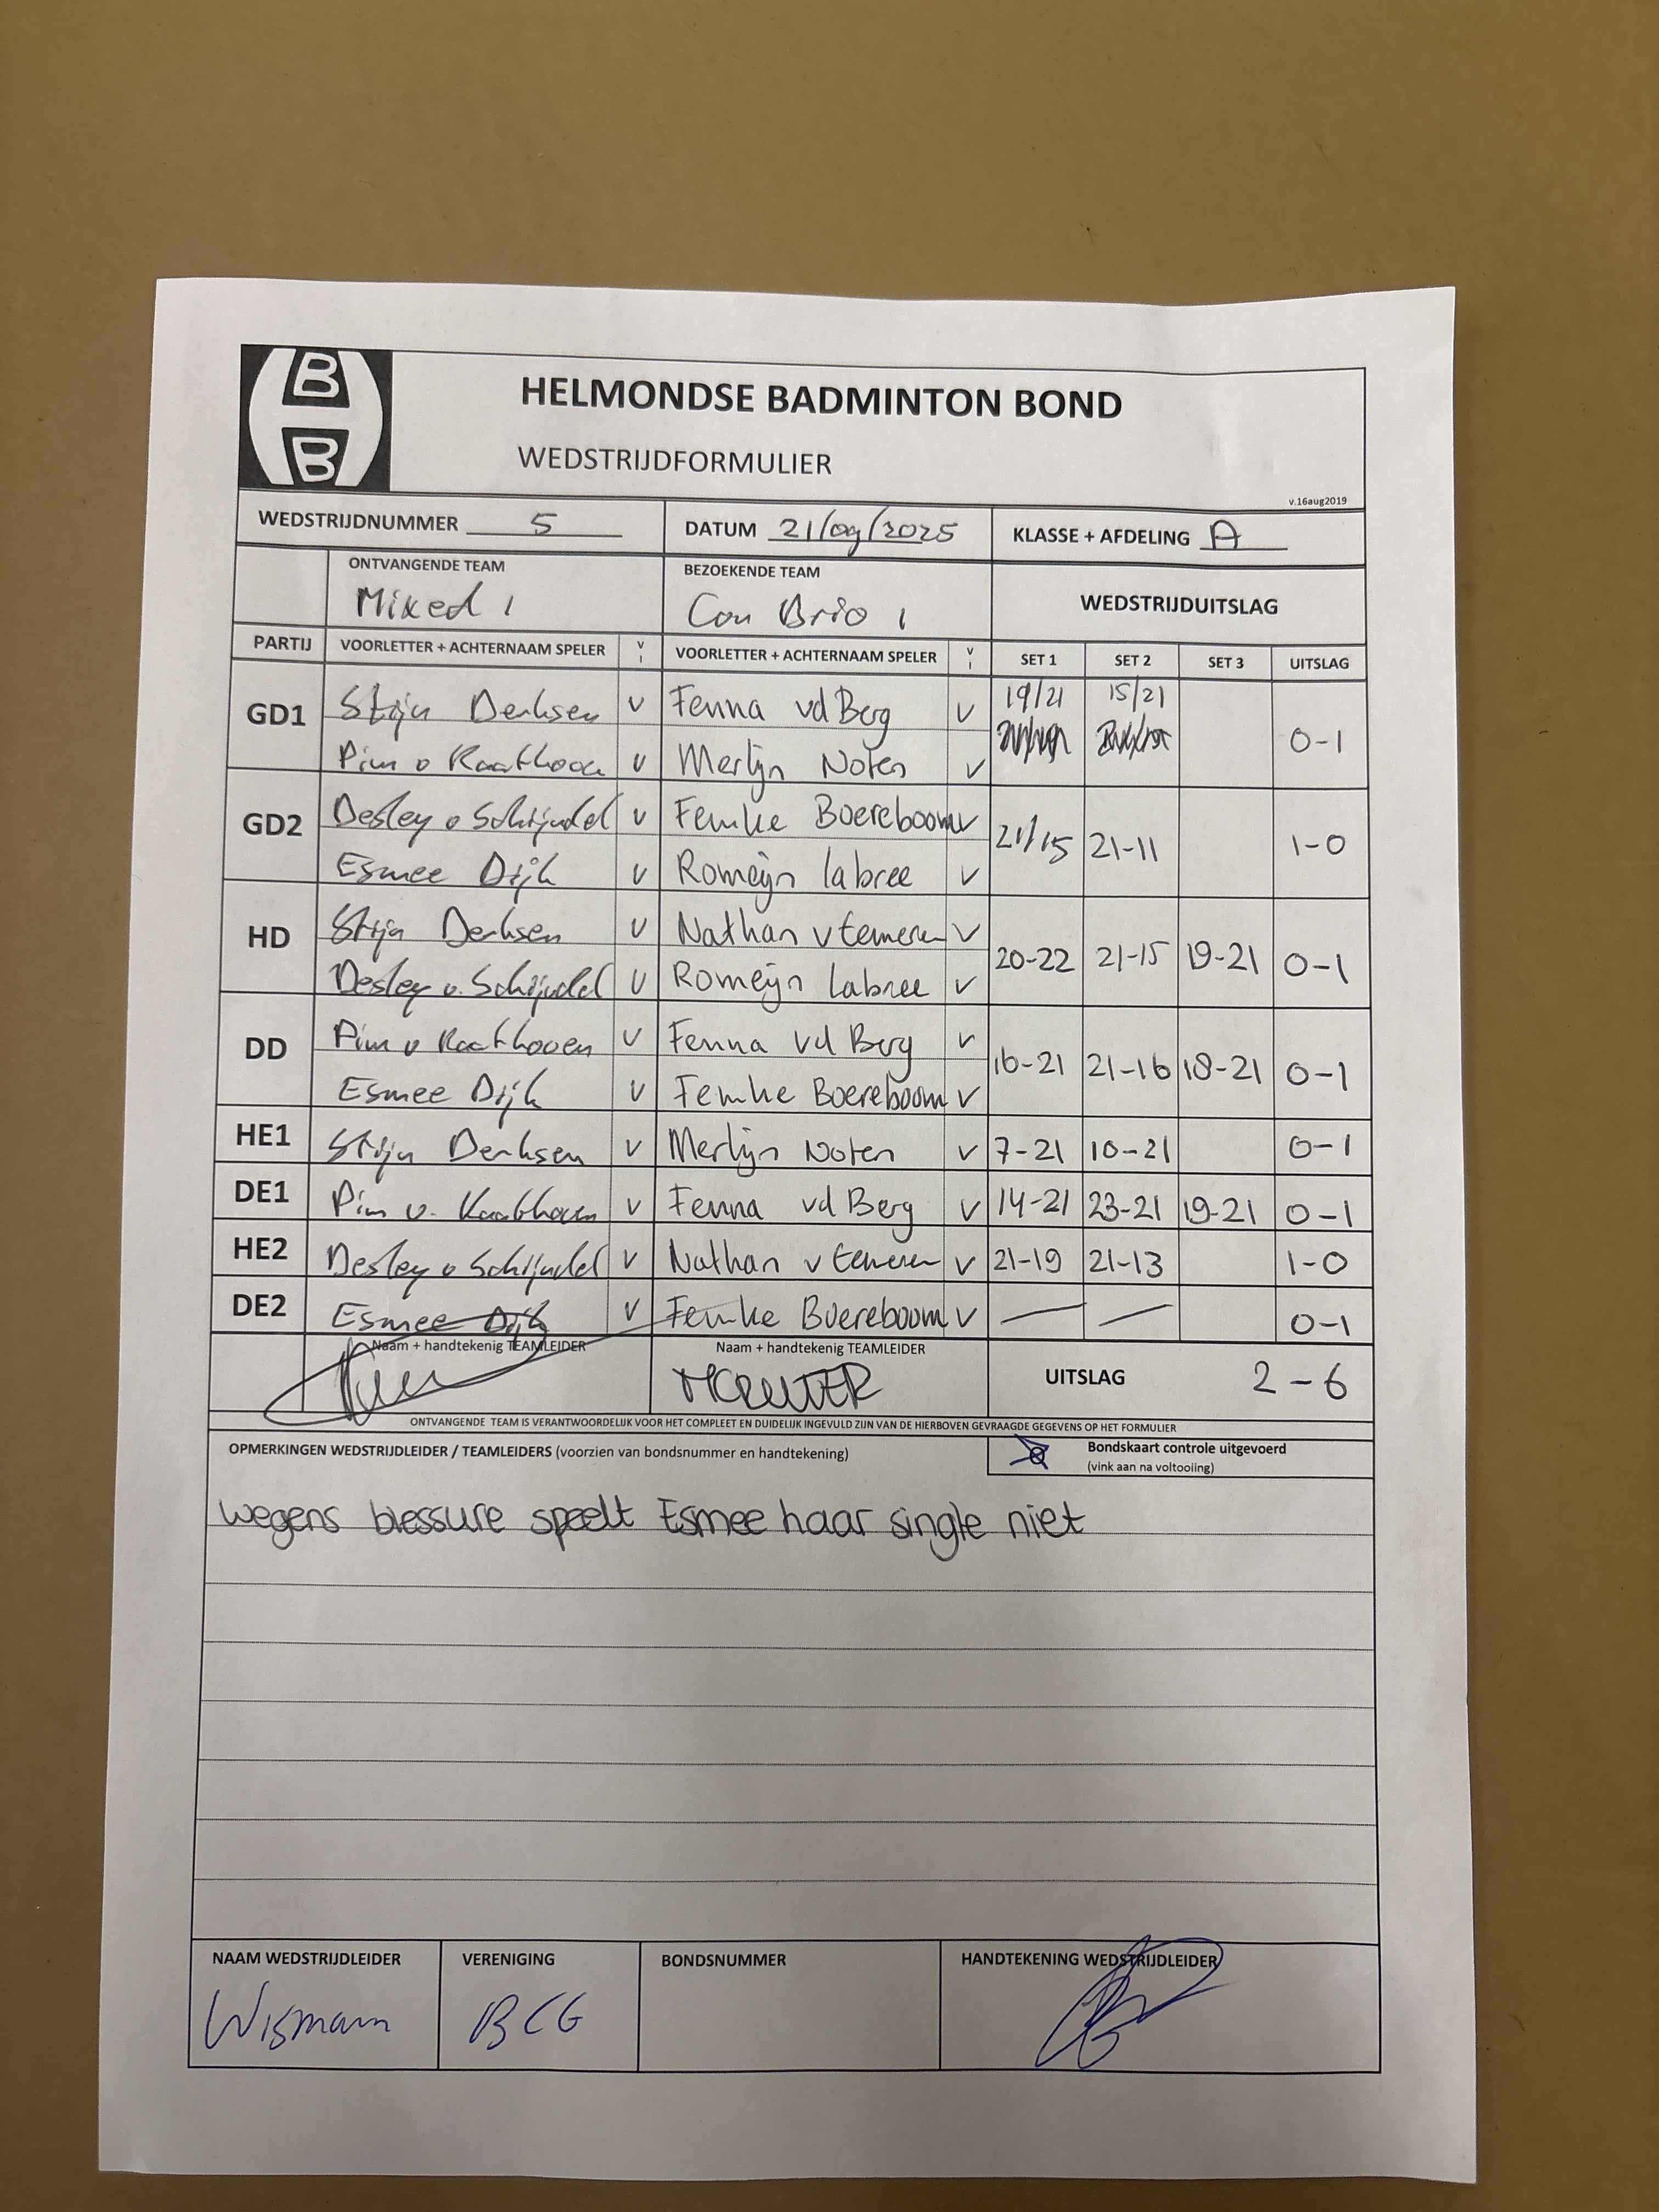 B
B
HELMONDSE BADMINTON BOND
WEDSTRIJDFORMULIER
v.16aug2019
WEDSTRIJDNUMMER 5 DATUM 21/09/2025 KLASSE + AFDELING A
ONTVANGENDE TEAM BEZOEKENDE TEAM WEDSTRIJDUITSLAG
Mixed 1 Con Brio 1
PARTIJ VOORLETTER + ACHTERNAAM SPELER V I VOORLETTER + ACHTERNAAM SPELER V I SET 1 SET 2 SET 3 UITSLAG
GD1 Stijn Derksen v Fenna vd Berg v 19/21 15/21 0-1
Pim v Raathoven v Merlijn Noten v
GD2 Desley v Schijndel v Femke Boereboom v 21/15 21-11 1-0
Esmee Dijk v Romeijn labree v
HD Stijn Derksen v Nathan v Eemeren v 20-22 21-15 19-21 0-1
Desley v. Schijndel v Romeijn Labree v
DD Pim v Raathoven v Fenna vd Berg v 16-21 21-16 18-21 0-1
Esmee Dijk v Femke Boereboom v
HE1 Stijn Derksen v Merlijn Noten v 7-21 10-21 0-1
DE1 Pim v. Raathoven v Fenna vd Berg v 14-21 23-21 19-21 0-1
HE2 Desley v Schijndel v Nathan v Eemeren v 21-19 21-13 1-0
DE2 Esmee Dijk v Femke Boereboom v — — 0-1
Naam + handtekenig TEAMLEIDER Naam + handtekenig TEAMLEIDER UITSLAG 2-6
ONTVANGENDE TEAM IS VERANTWOORDELIJK VOOR HET COMPLEET EN DUIDELIJK INGEVULD ZIJN VAN DE HIERBOVEN GEVRAAGDE GEGEVENS OP HET FORMULIER
OPMERKINGEN WEDSTRIJDLEIDER / TEAMLEIDERS (voorzien van bondsnummer en handtekening) Bondskaart controle uitgevoerd
(vink aan na voltooiing)
wegens blessure speelt Esmee haar single niet
NAAM WEDSTRIJDLEIDER VERENIGING BONDSNUMMER HANDTEKENING WEDSTRIJDLEIDER
Wismam BCG